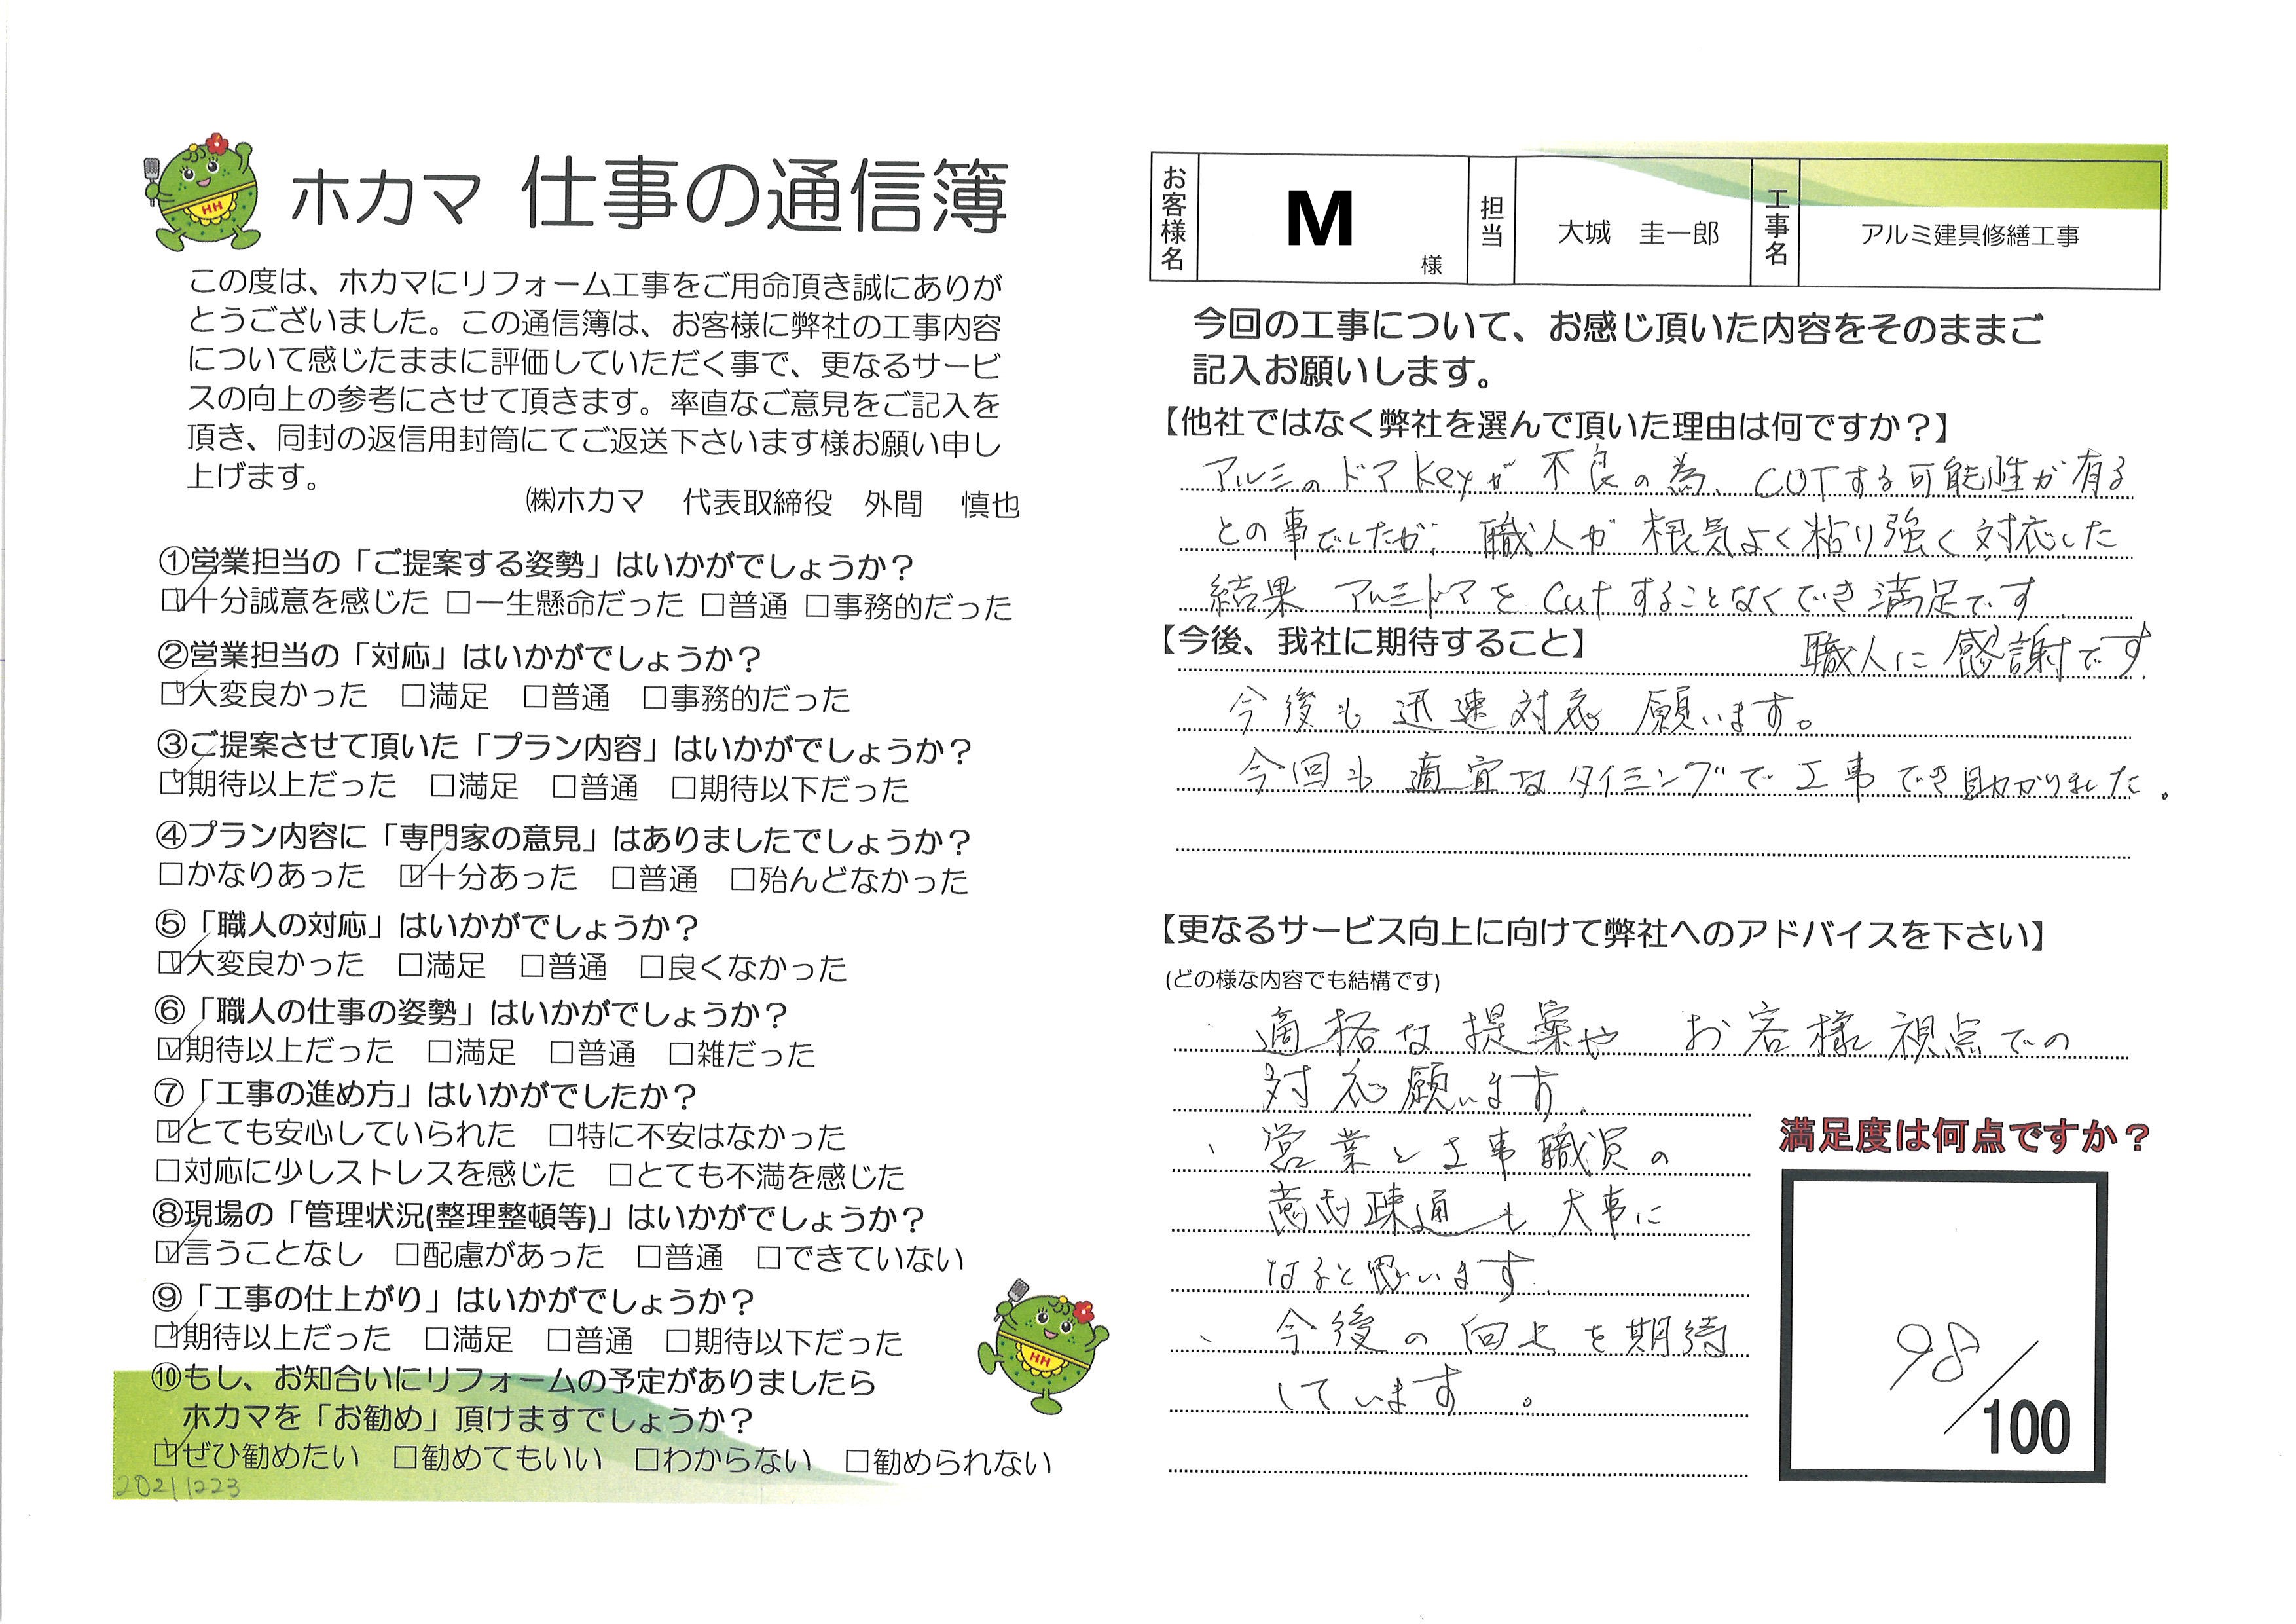 ホカマ 仕事の通信簿
この度は、ホカマにリフォーム工事をご用命頂き誠にありが
とうございました。この通信簿は、お客様に弊社の工事内容
について感じたままに評価していただく事で、更なるサービ
スの向上の参考にさせて頂きます。率直なご意見をご記入を
頂き、同封の返信用封筒にてご返送下さいます様お願い申し
上げます。
㈱ホカマ 代表取締役 外間 慎也
①営業担当の「ご提案する姿勢」はいかがでしょうか？
☑十分誠意を感じた □一生懸命だった □普通 □事務的だった
②営業担当の「対応」はいかがでしょうか？
☑大変良かった □満足 □普通 □事務的だった
③ご提案させて頂いた「プラン内容」はいかがでしょうか？
☑期待以上だった □満足 □普通 □期待以下だった
④プラン内容に「専門家の意見」はありましたでしょうか？
□かなりあった ☑十分あった □普通 □殆んどなかった
⑤「職人の対応」はいかがでしょうか？
☑大変良かった □満足 □普通 □良くなかった
⑥「職人の仕事の姿勢」はいかがでしょうか？
☑期待以上だった □満足 □普通 □雑だった
⑦「工事の進め方」はいかがでしたか？
☑とても安心していられた □特に不安はなかった
□対応に少しストレスを感じた □とても不満を感じた
⑧現場の「管理状況(整理整頓等)」はいかがでしょうか？
☑言うことなし □配慮があった □普通 □できていない
⑨「工事の仕上がり」はいかがでしょうか？
☑期待以上だった □満足 □普通 □期待以下だった
⑩もし、お知合いにリフォームの予定がありましたら
ホカマを「お勧め」頂けますでしょうか？
☑ぜひ勧めたい □勧めてもいい □わからない □勧められない
20211223
HH
HH
お客様名 M 様 担当 大城 圭一郎 工事名 アルミ建具修繕工事
今回の工事について、お感じ頂いた内容をそのままご
記入お願いします。
【他社ではなく弊社を選んで頂いた理由は何ですか？】
アルミのドアKeyが不良の為、CUTする可能性が有る
との事でしたが、職人が根気よく粘り強く対応した
結果アルミドアをCutすることなくでき満足です。
【今後、我社に期待すること】
職人に感謝です。
今後も迅速対応願います。
今回も適宜なタイミングで工事でき助かりました。
【更なるサービス向上に向けて弊社へのアドバイスを下さい】
(どの様な内容でも結構です)
、適格な提案や お客様視点での
対応願います。
、営業と工事職員の
意志疎通も大事に
なると思います。
、今後の向上を期待
しています。
満足度は何点ですか？
98/100